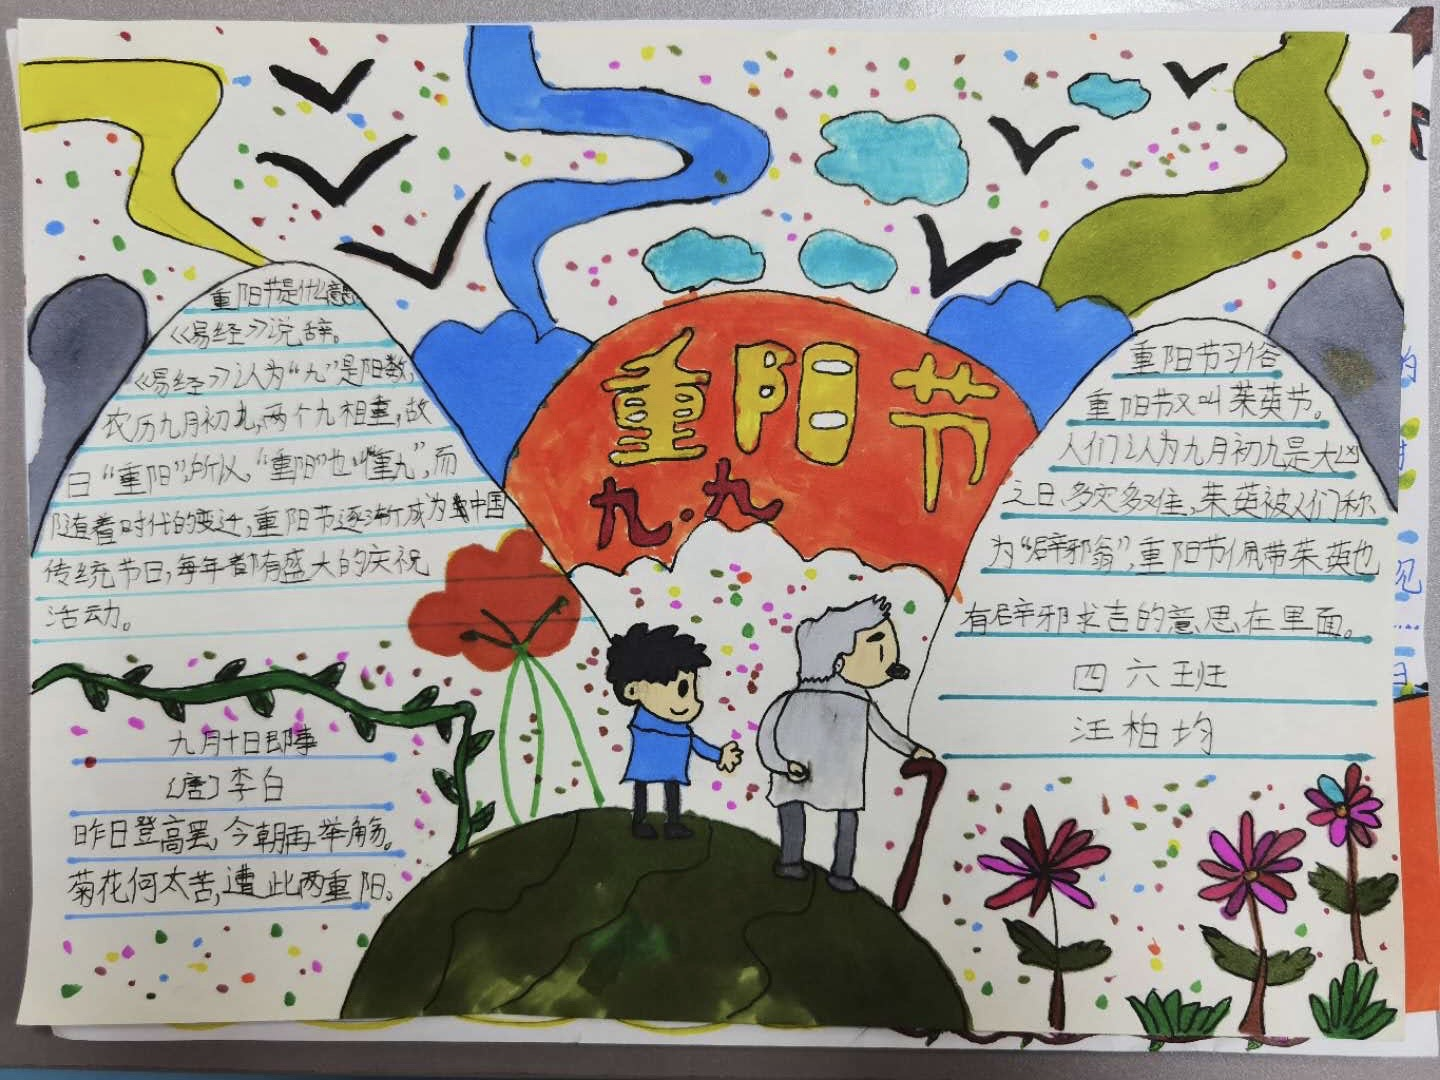 重阳节
九.九
重阳节是什么意思
《易经》说辞。
《易经》认为“九”是阳数，
农历九月初九，两个九相重，故
曰“重阳”，所以，“重阳”也“重九”，而
随着时代的变迁，重阳节逐渐成为中国
传统节日，每年都有盛大的庆祝
活动。
九月十日即事
〔唐〕李白
昨日登高罢，今朝再举觞。
菊花何太苦，遭此两重阳。
重阳节习俗
重阳节又叫茱萸节。
人们认为九月初九是大凶
之日、多灾多难，茱萸被人们称
为“辟邪翁”，重阳节佩带茱萸也
有辟邪求吉的意思在里面。
四六班
汪柏均